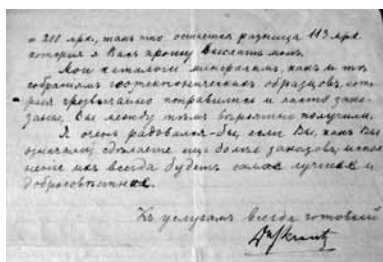 = 200 мрк., такъ что остается разница 113 мрк
которыя я Васъ прошу выслать мнѣ.
Мои каталоги минераламъ, какъ и то
собраніямъ геотектоническихъ образцовъ, кот
рыя чрезвычайно понравились и часто зака
заны, Вы между тѣмъ вѣроятно получили.
Я очень радовался-бы, если Вы, какъ Вы
означали, сдѣлаете еще болѣе заказовъ, испол
неніе ихъ всегда будетъ самое лучшее и
добросовѣстное.
Къ услугамъ всегда готовый
Dr Krantz